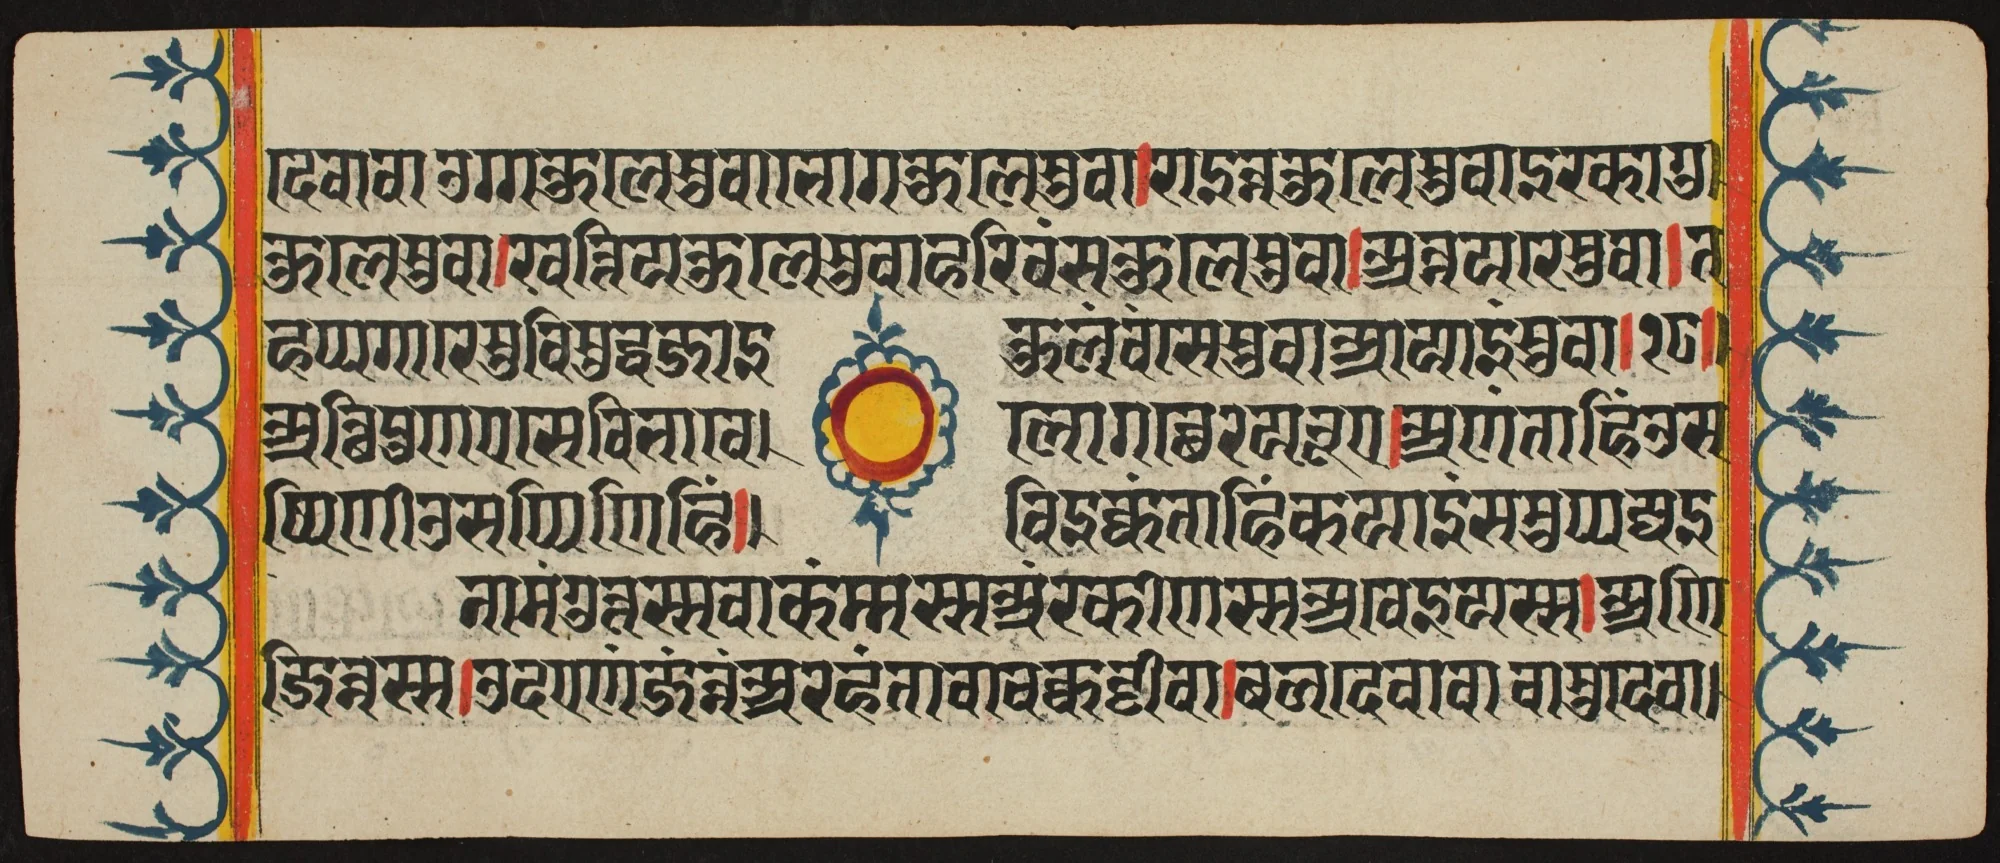 देवा वा उग्गकुलेसु वा भोगकुलेसु वा।राइन्नकुलेसु वा इरकाग
कुलेसु वा।खत्तियकुलेसु वा हरिवंसकुलेसु वा।अन्नयरेसु वा।त
हप्पगारेसु विसुद्धजाइ कुलवंसेसु वा आयाइंसु वा।१८।
अत्थि पुण एसे वि भावे लोगच्छेरयभूए।अणंताहिं उस
प्पिणीउसप्पिणिहिं। विइक्कंताहिं कयाइं समुप्पज्जइ
नामंगुत्तस्स वा कंम्मस्स अंरकीणस्स अवेइयस्स।अणि
ज्जिन्नस्स।उदएणं जंन्नं अरहंता वा चक्कवट्टी वा।बलदेवा वा वासुदेवा